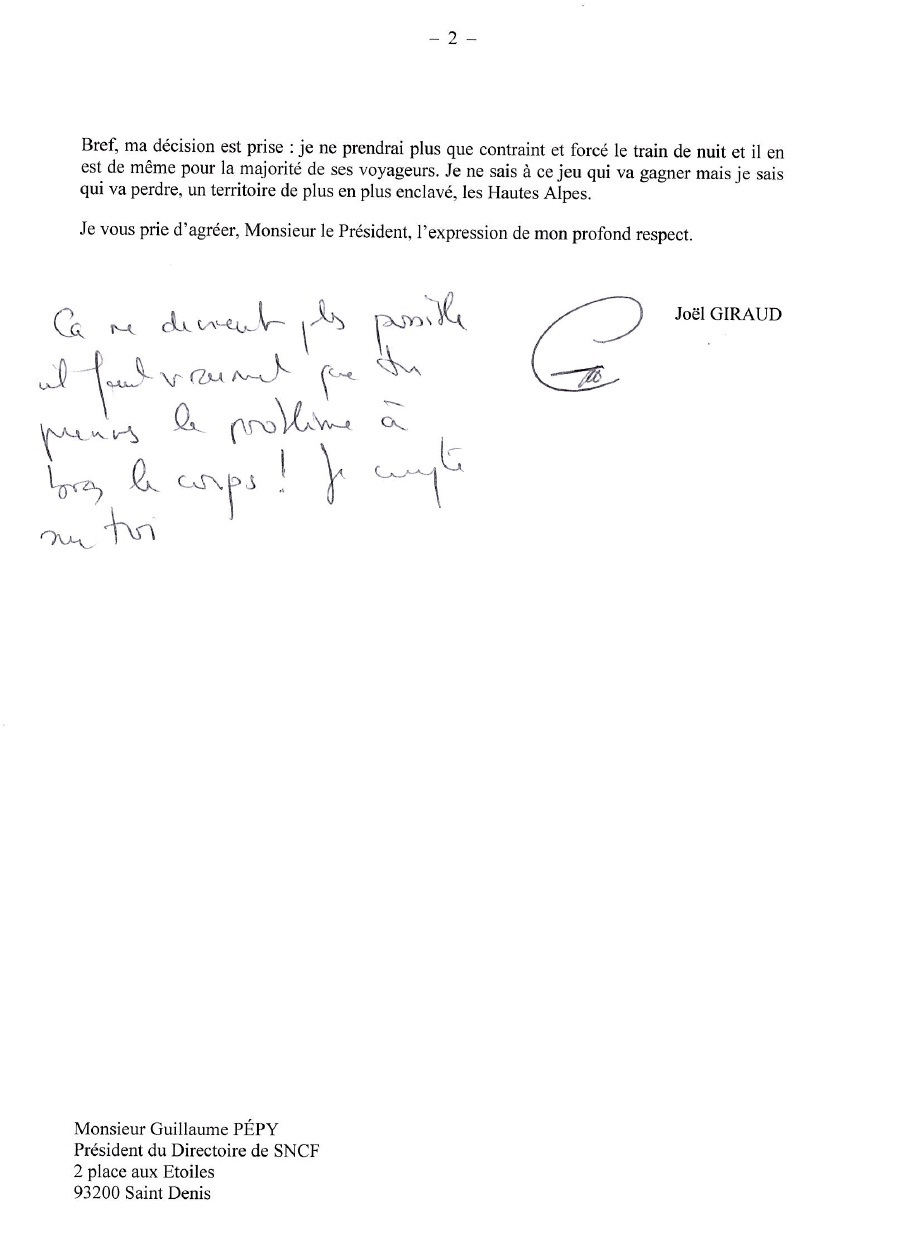 – 2 –
Bref, ma décision est prise : je ne prendrai plus que contraint et forcé le train de nuit et il en
est de même pour la majorité de ses voyageurs. Je ne sais à ce jeu qui va gagner mais je sais
qui va perdre, un territoire de plus en plus enclavé, les Hautes Alpes.
Je vous prie d’agréer, Monsieur le Président, l’expression de mon profond respect.
Joël GIRAUD
Ca ne devient plus possible
il faut vraiment que tu
prennes le problème à
bras le corps ! Je compte
sur toi
Monsieur Guillaume PÉPY
Président du Directoire de SNCF
2 place aux Etoiles
93200 Saint Denis